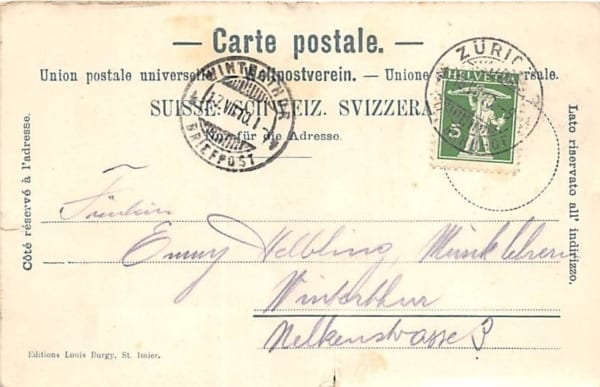 — Carte postale. —
Union postale universelle. Weltpostverein. — Unione postale universale.
SUISSE. SCHWEIZ. SVIZZERA
für die Adresse.
WINTERTHUR
BRIEFPOST
ZÜRIC
HELVETIA
5
Côté réservé à l'adresse.
Lato riservato all' indirizzo.
Fräulein
Emmy Helbling, Musiklehrerin
Winterthur
Nelkenstrasse 3
Editions Louis Burgy, St. Imier.